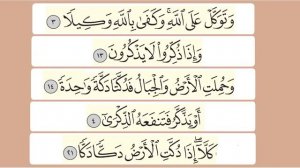 وَتَوَكَّلْ عَلَى ٱللَّهِ ۚ وَكَفَىٰ بِٱللَّهِ وَكِيلًا ٣
وَإِذَا ذُكِّرُوا۟ لَا يَذْكُرُونَ ١٣
وَحُمِلَتِ ٱلْأَرْضُ وَٱلْجِبَالُ فَدُكَّتَا دَكَّةً وَٰحِدَةً ١٤
أَوْ يَذَّكَّرُ فَتَنفَعَهُ ٱلذِّكْرَىٰٓ ٤
كَلَّآ ۖ إِذَا دُكَّتِ ٱلْأَرْضُ دَكًّا دَكًّا ٢١